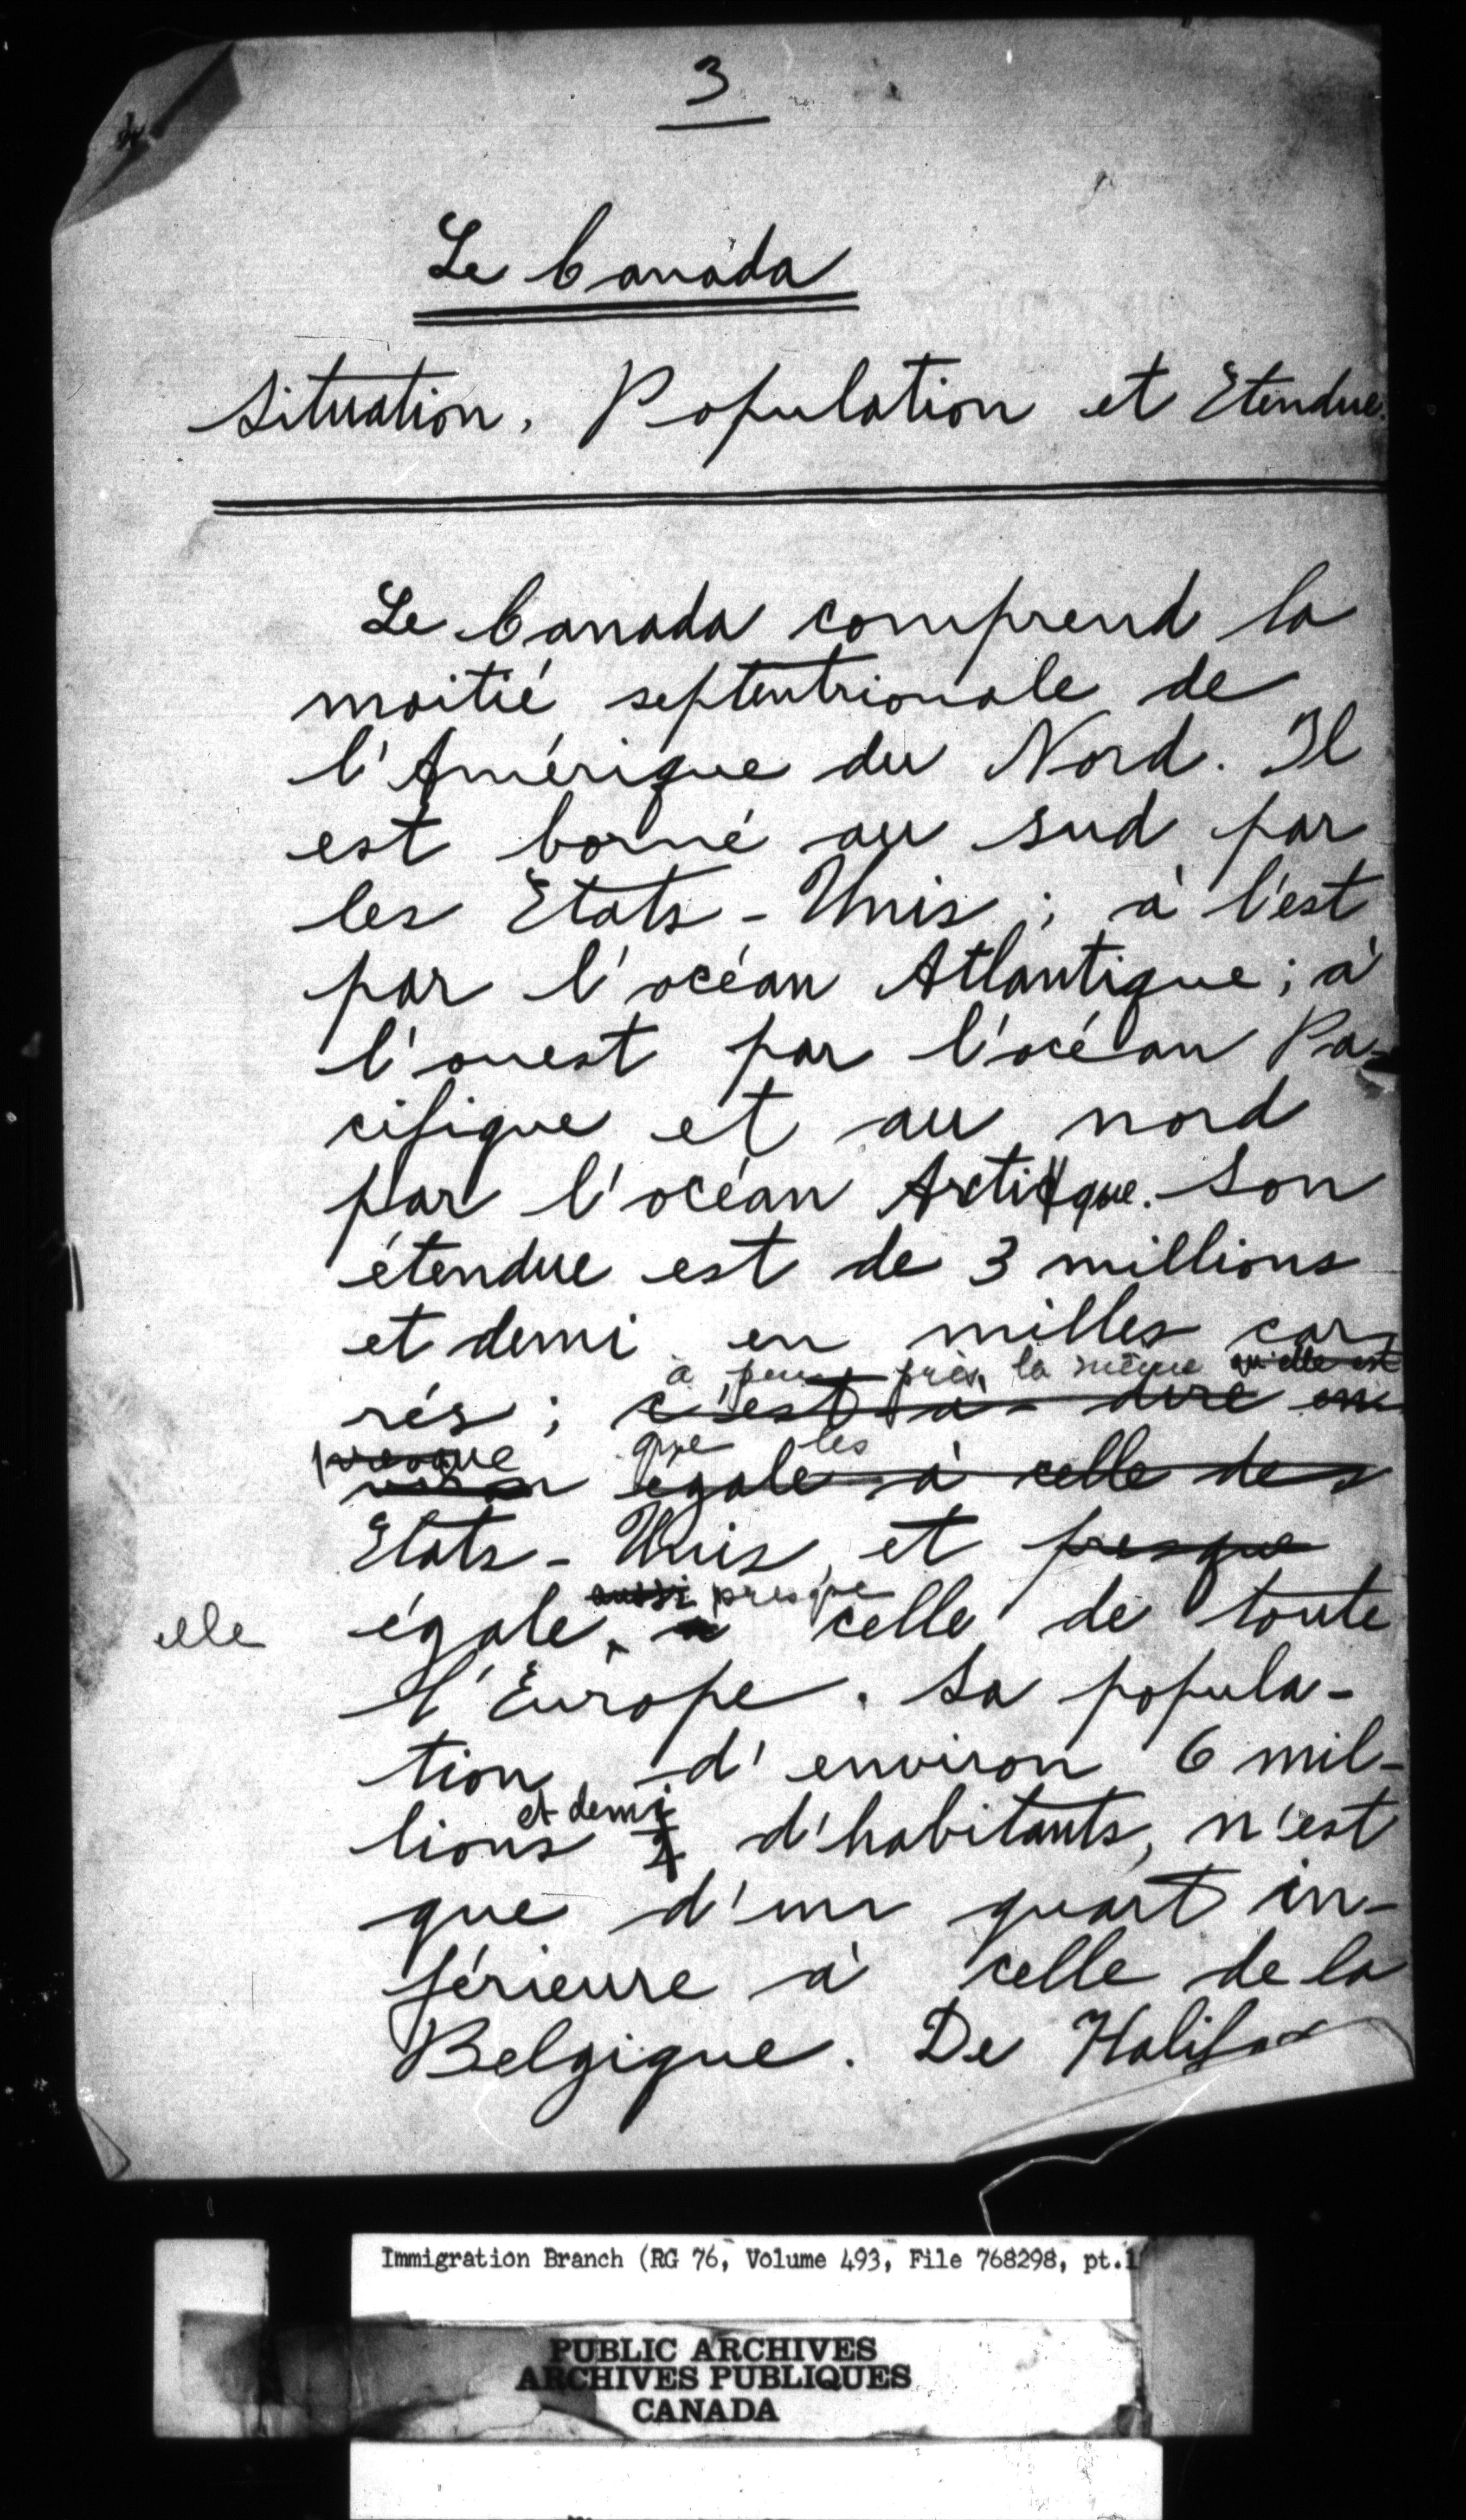 3
Le Canada
Situation, Population et Etendue.
Le Canada comprend la
moitié septentrionale de
l'Amérique du Nord. Il
est borné au sud par
les Etats-Unis; à l'est
par l'océan Atlantique; à
l'ouest par l'océan Pa-
cifique et au nord
par l'océan Arctique. Son
étendue est de 3 millions
et demi en milles car
à peu près la même qu'elle est
rés; c'est à-dire en
presque que les
égale à celle des
Etats-Unis, et presque
aussi presque
elle égale à celle de toute
l'Europe. Sa popula-
tion, d'environ 6 mil-
et demi
lions d'habitants, n'est
que d'un quart in-
férieure à celle de la
Belgique. De Halifax
Immigration Branch (RG 76, Volume 493, File 768298, pt.1
PUBLIC ARCHIVES
ARCHIVES PUBLIQUES
CANADA